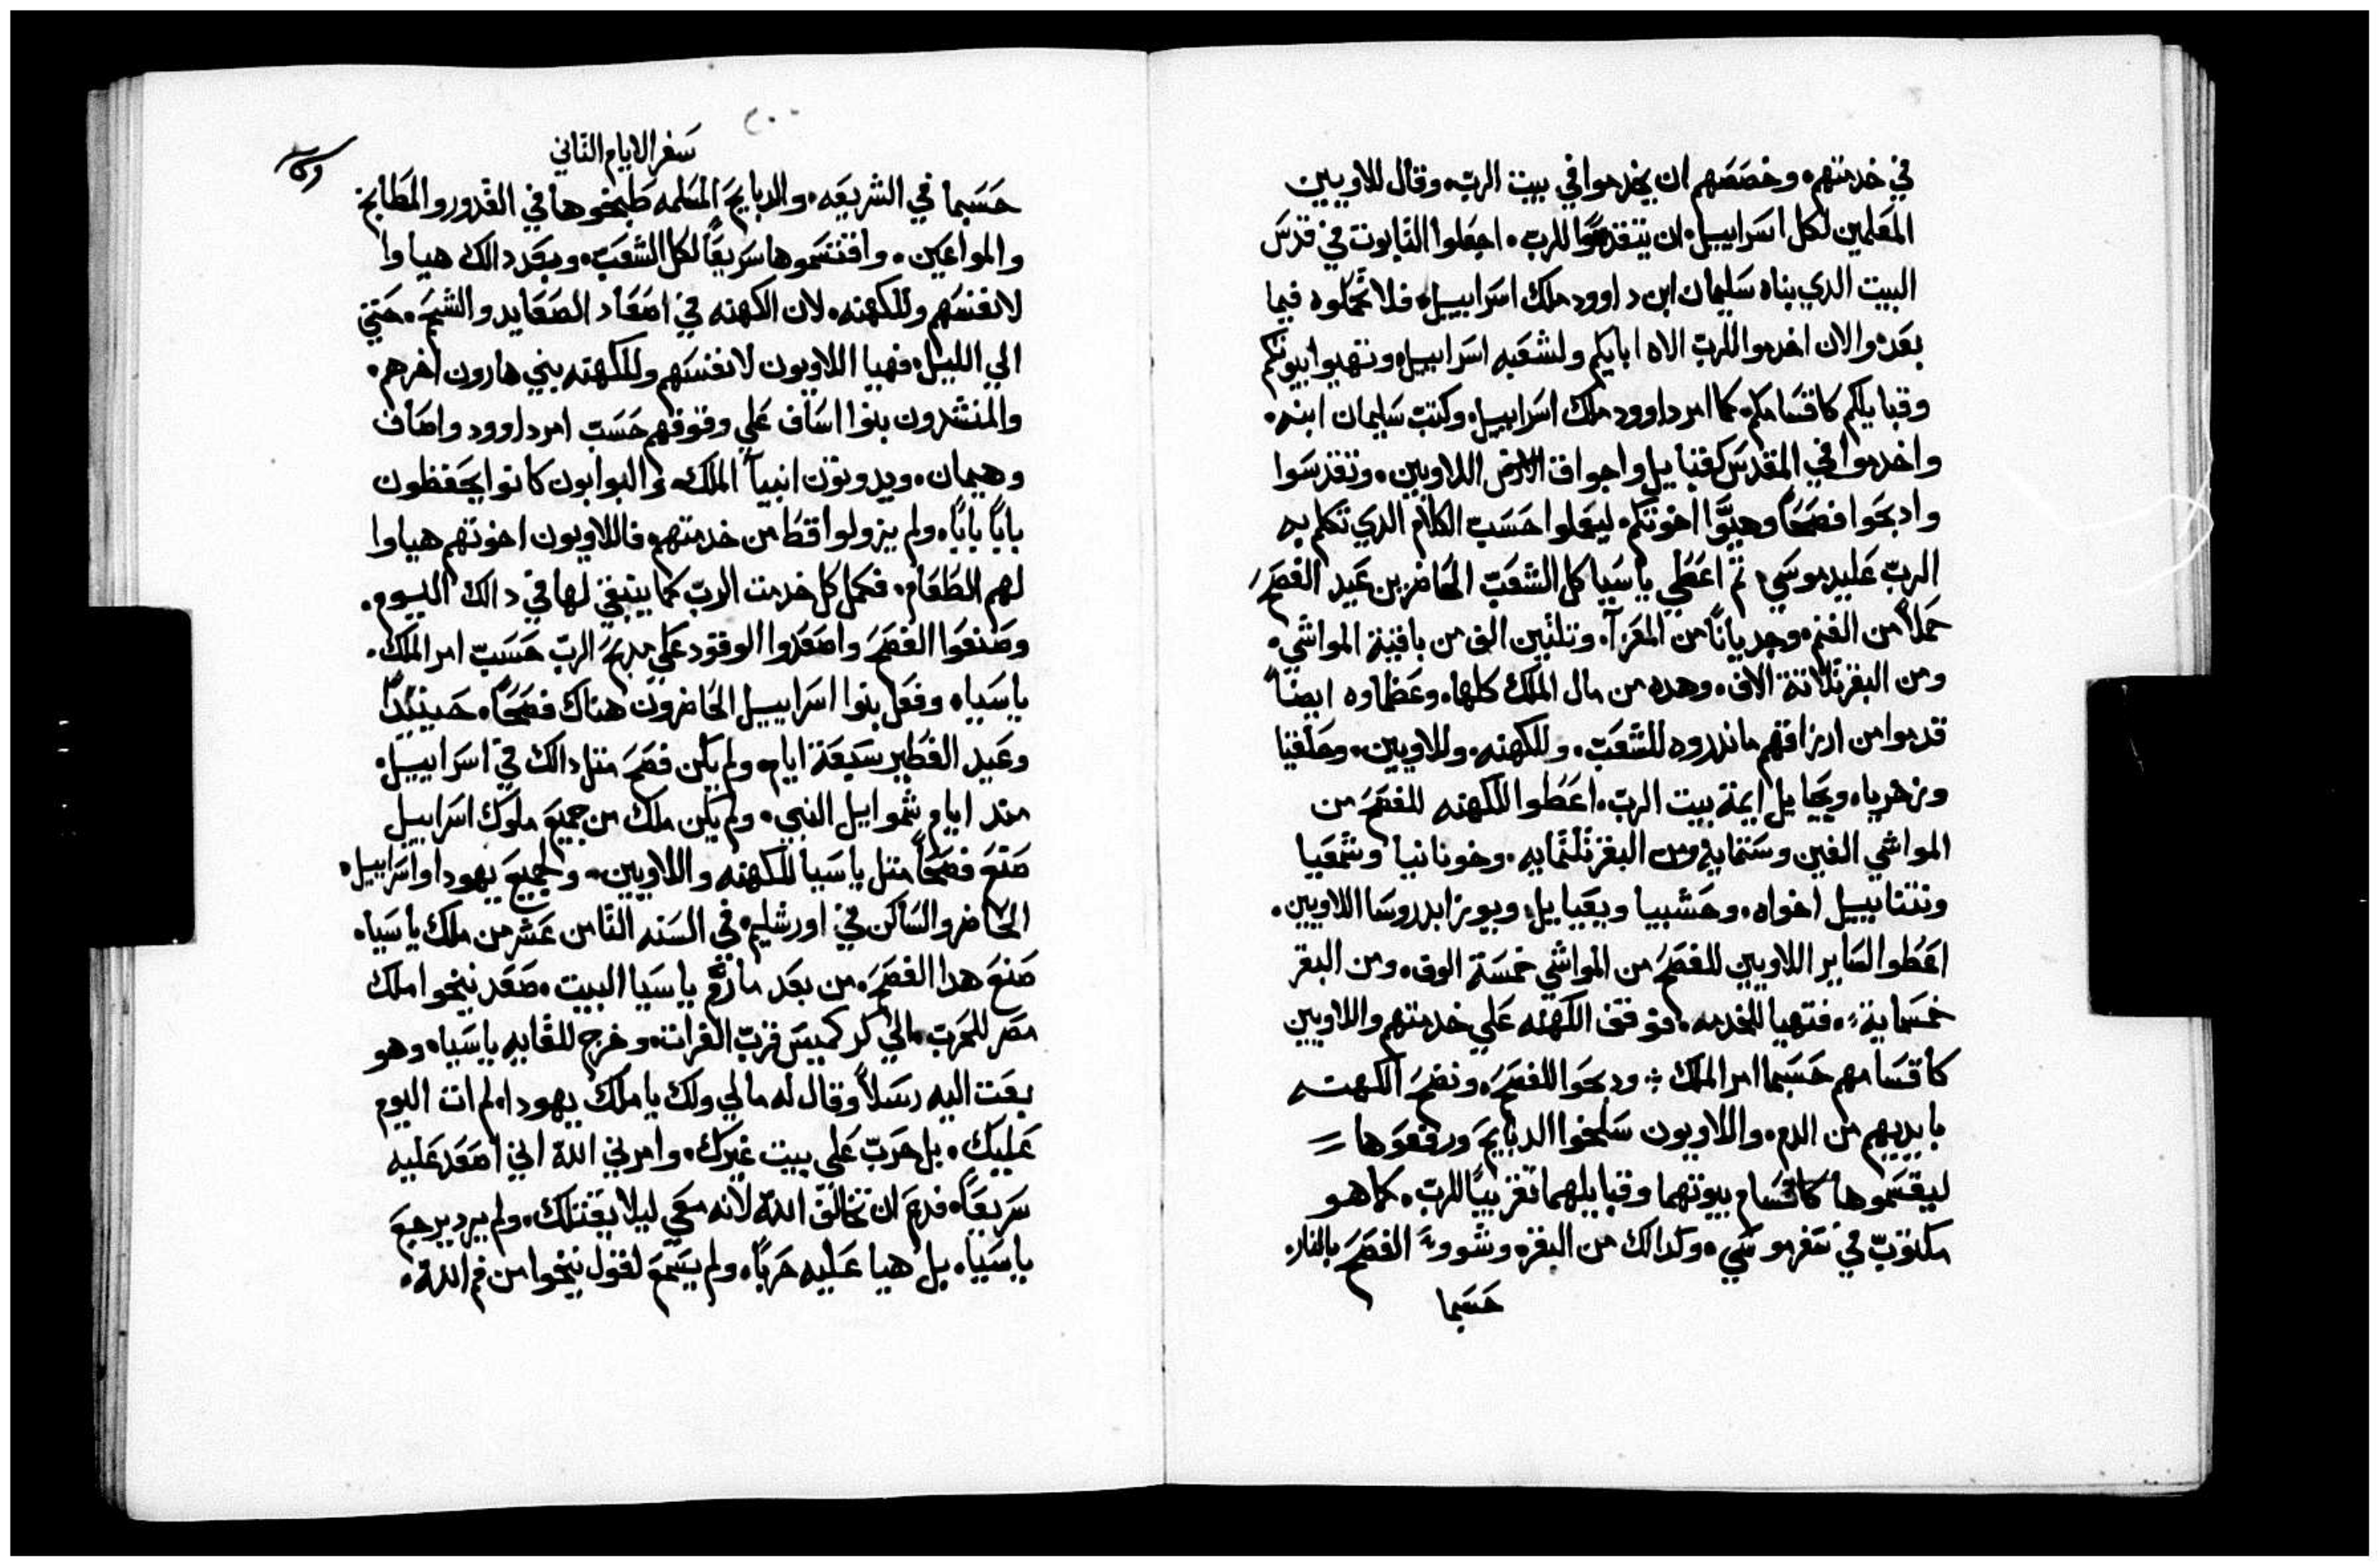 في خدمتهم. وخصصهم ان يخدموا في بيت الرب. وقال للاويين
المعلمين لكل اسراييل. ان يتقدسوا للرب. اجعلوا التابوت في قدس
البيت الدي بناه سليمان ابن داوود ملك اسراييل. فلا تحملوه فيما
بعد. والان اخدموا للرب الاه ابايكم ولشعبه اسراييل. وتهيوا ببيوتكم
وقبايلكم كاقسامكم. كما امر داوود ملك اسراييل. وكتب سليمان ابنه.
واخدموا في المقدس كقبايل واجواق اللاويين. وتقدسوا
وادبحوا فصحاً وهيّوا اخوتكم. ليعملوا حسب الكلام الدي تكلم به
الرب علي يد موسي. ثم اعطي ياسيا كل الشعب الحاضرين عيد الفصح
حملاً من الغنم. وجدياناً من المعزا. وتلتين الف من باقية المواشي.
ومن البقر تلاتة الاف. وهده من مال الملك كلها. وعظماوه ايضاً
قدموا من ارزاقهم ماندروه للشعب. وللكهنه. وللاويين. وحلقيا
وزخريا. ويحيايل ايمة بيت الرب. اعطوا للكهنه للفصح من
المواشي الفين وستمايه ومن البقر تلتمايه. وخونانيا وشمعيا
ونتناييل اخواه. وحشبيا ويعيايل. ويوزابد روسا اللاويين.
اعطوا لساير اللاويين للفصح من المواشي خمسة الوف. ومن البقر
خمسماية. فتهيا للخدمه. فوقف الكهنه علي خدمتهم واللاويين
كاقسامهم حسبما امر الملك ܀ ودبحوا للفصح. ونضح الكهنه
بايديهم من الدم. واللاويون سلخوا الدبايح ورفعوها =
ليقسموها كاقسام بيوتهما وقبايلهما تقريباً للرب. كما هو
مكتوب في سفر موسي. وكدالك من البقر. وشووا الفصح بالنار.
حسبما
٢٠٠
سفر الايام التاني
حسبما في الشريعه. والدبايح المسلمه طبخوها في القدور والمطابخ
والمواعين. واقتسموها سريعاً لكل الشعب. وبعد دالك هياوا
لانفسهم وللكهنه. لان الكهنه في اصعاد الصعايد والشحم. حتي
الي الليل. فهيا اللاويون لانفسهم وللكهنه بني هارون اخرهم.
والمنشدون بنوا اساف علي وقوفهم حسب امر داوود واصاف
وهيمان. ويدوتون انبيا الملك. والبوابون كانوا يحفظون
باباً باباً. ولم يزولوا قط من خدمتهم. فاللاويون اخوتهم هياوا
لهم الطعام. فكمل كل خدمت الرب كما ينبغي لها في دالك اليوم.
وصنعوا الفصح واصعدوا الوقود علي مدبح الرب حسب امر الملك.
ياسيا. وفعل بنوا اسراييل الحاضرون هناك فصحاً. حينيداً
وعيد الفطير سبعة ايام. ولم يكن فصح متل دالك في اسراييل.
مند ايام شموايل النبي. ولم يكن ملك من جميع ملوك اسراييل
صنع فصحاً متل ياسيا للكهنه واللاويين. ولجميع يهودا واسراييل.
الحاضر والساكن في اورشليم. في السنه التامن عشر من ملك ياسيا.
صنع هدا الفصح. من بعد ما رمّ ياسيا البيت. صعد نيخوا ملك
مصر للحرب. الي كركميس قرب الفرات. وخرج للقايه ياسيا. وهو
بعت اليه رسلاً وقال له مالي ولك يا ملك يهودا. لم ات اليوم
عليك. بل حرب علي بيت غيرك. وامرني الله اني اصعد عليه
سريعاً. فدع ان تخالف الله لانه معي ليلا يقتلك. ولم يرد يرجع
ياسيا. بل هيا عليه حرباً. ولم يسمع لقول نيخوا من فم الله.